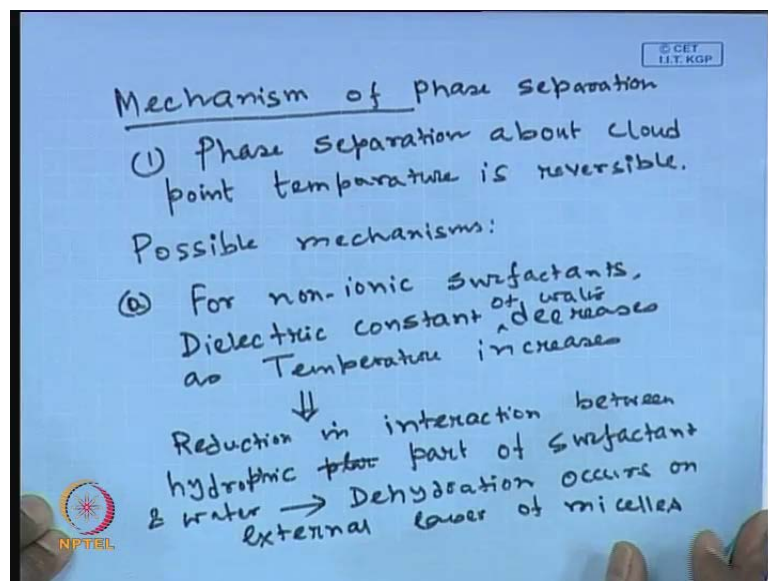 © CET
I.I.T. KGP
Mechanism of phase separation
(1) Phase separation about cloud
point temparature is reversible.
Possible mechanisms:
(a) For non-ionic surfactants,
Dielectric constant of water decreases
as Temperature increases
⇓
Reduction in interaction between
hydrophic part of surfactant
& water → Dehydration occurs on
external layer of micelles
NPTEL